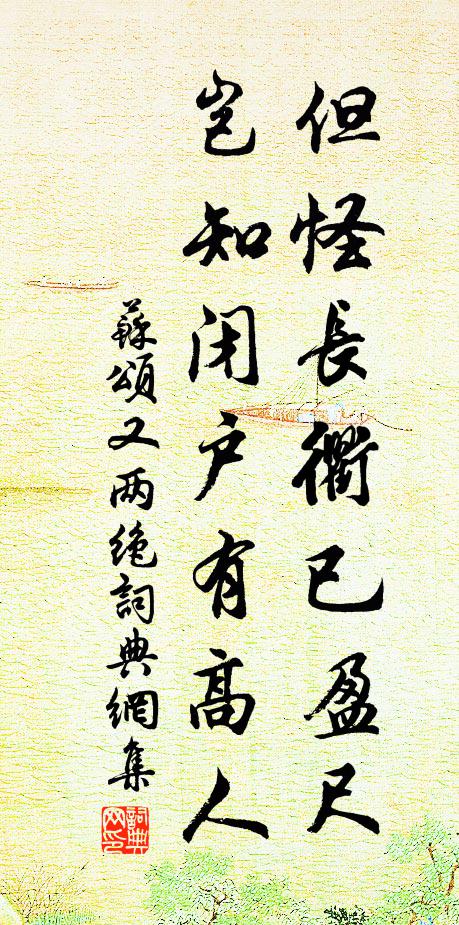 但怪長衢已盈尺
豈知閉户有高人
蘇頌又两绝詞典網集
詞典
网印